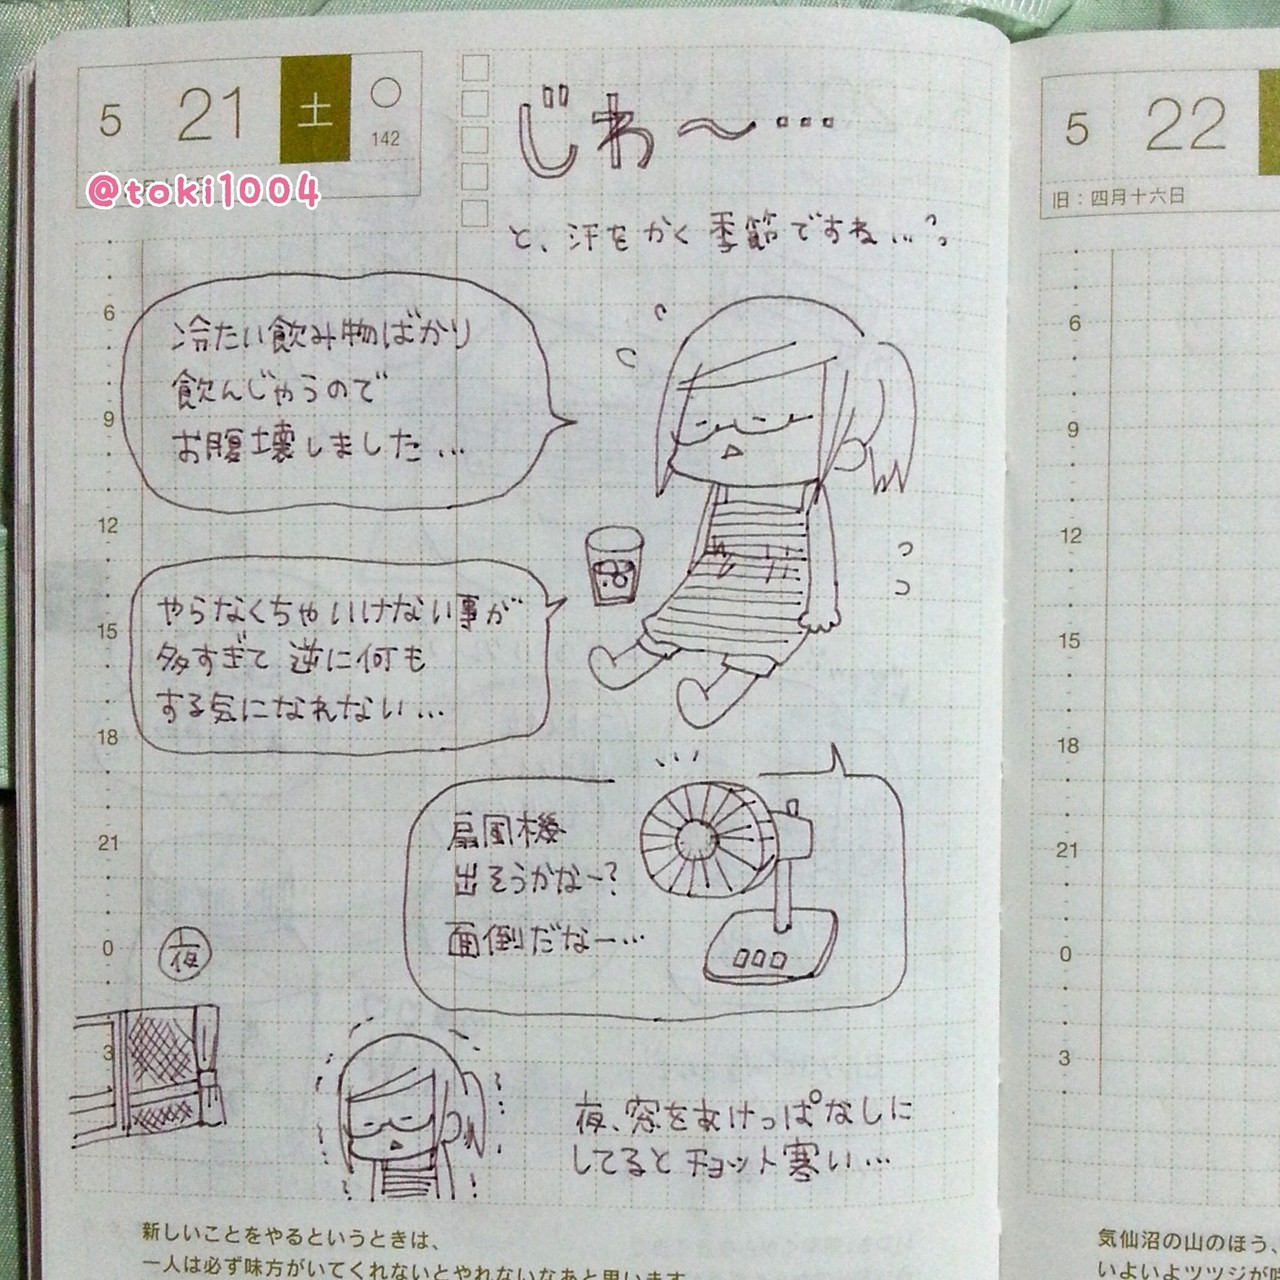 5 21 土
142
@toki1004
じわ～…
と、汗をかく季節ですね…
冷たい飲み物ばかり
飲んじゃうので
お腹壊しました…
やらなくちゃいけない事が
多すぎて逆に何も
する気になれない…
扇風機
出そうかなー?
面倒だなー…
夜
夜、窓をあけっぱなしに
してるとチョット寒い…
6
9
12
15
18
21
0
3
新しいことをやるというときは、
一人は必ず味方がいてくれないとやれないなあと思います
5 22
旧:四月十六日
6
9
12
15
18
21
0
3
気仙沼の山のほう、
いよいよツツジが